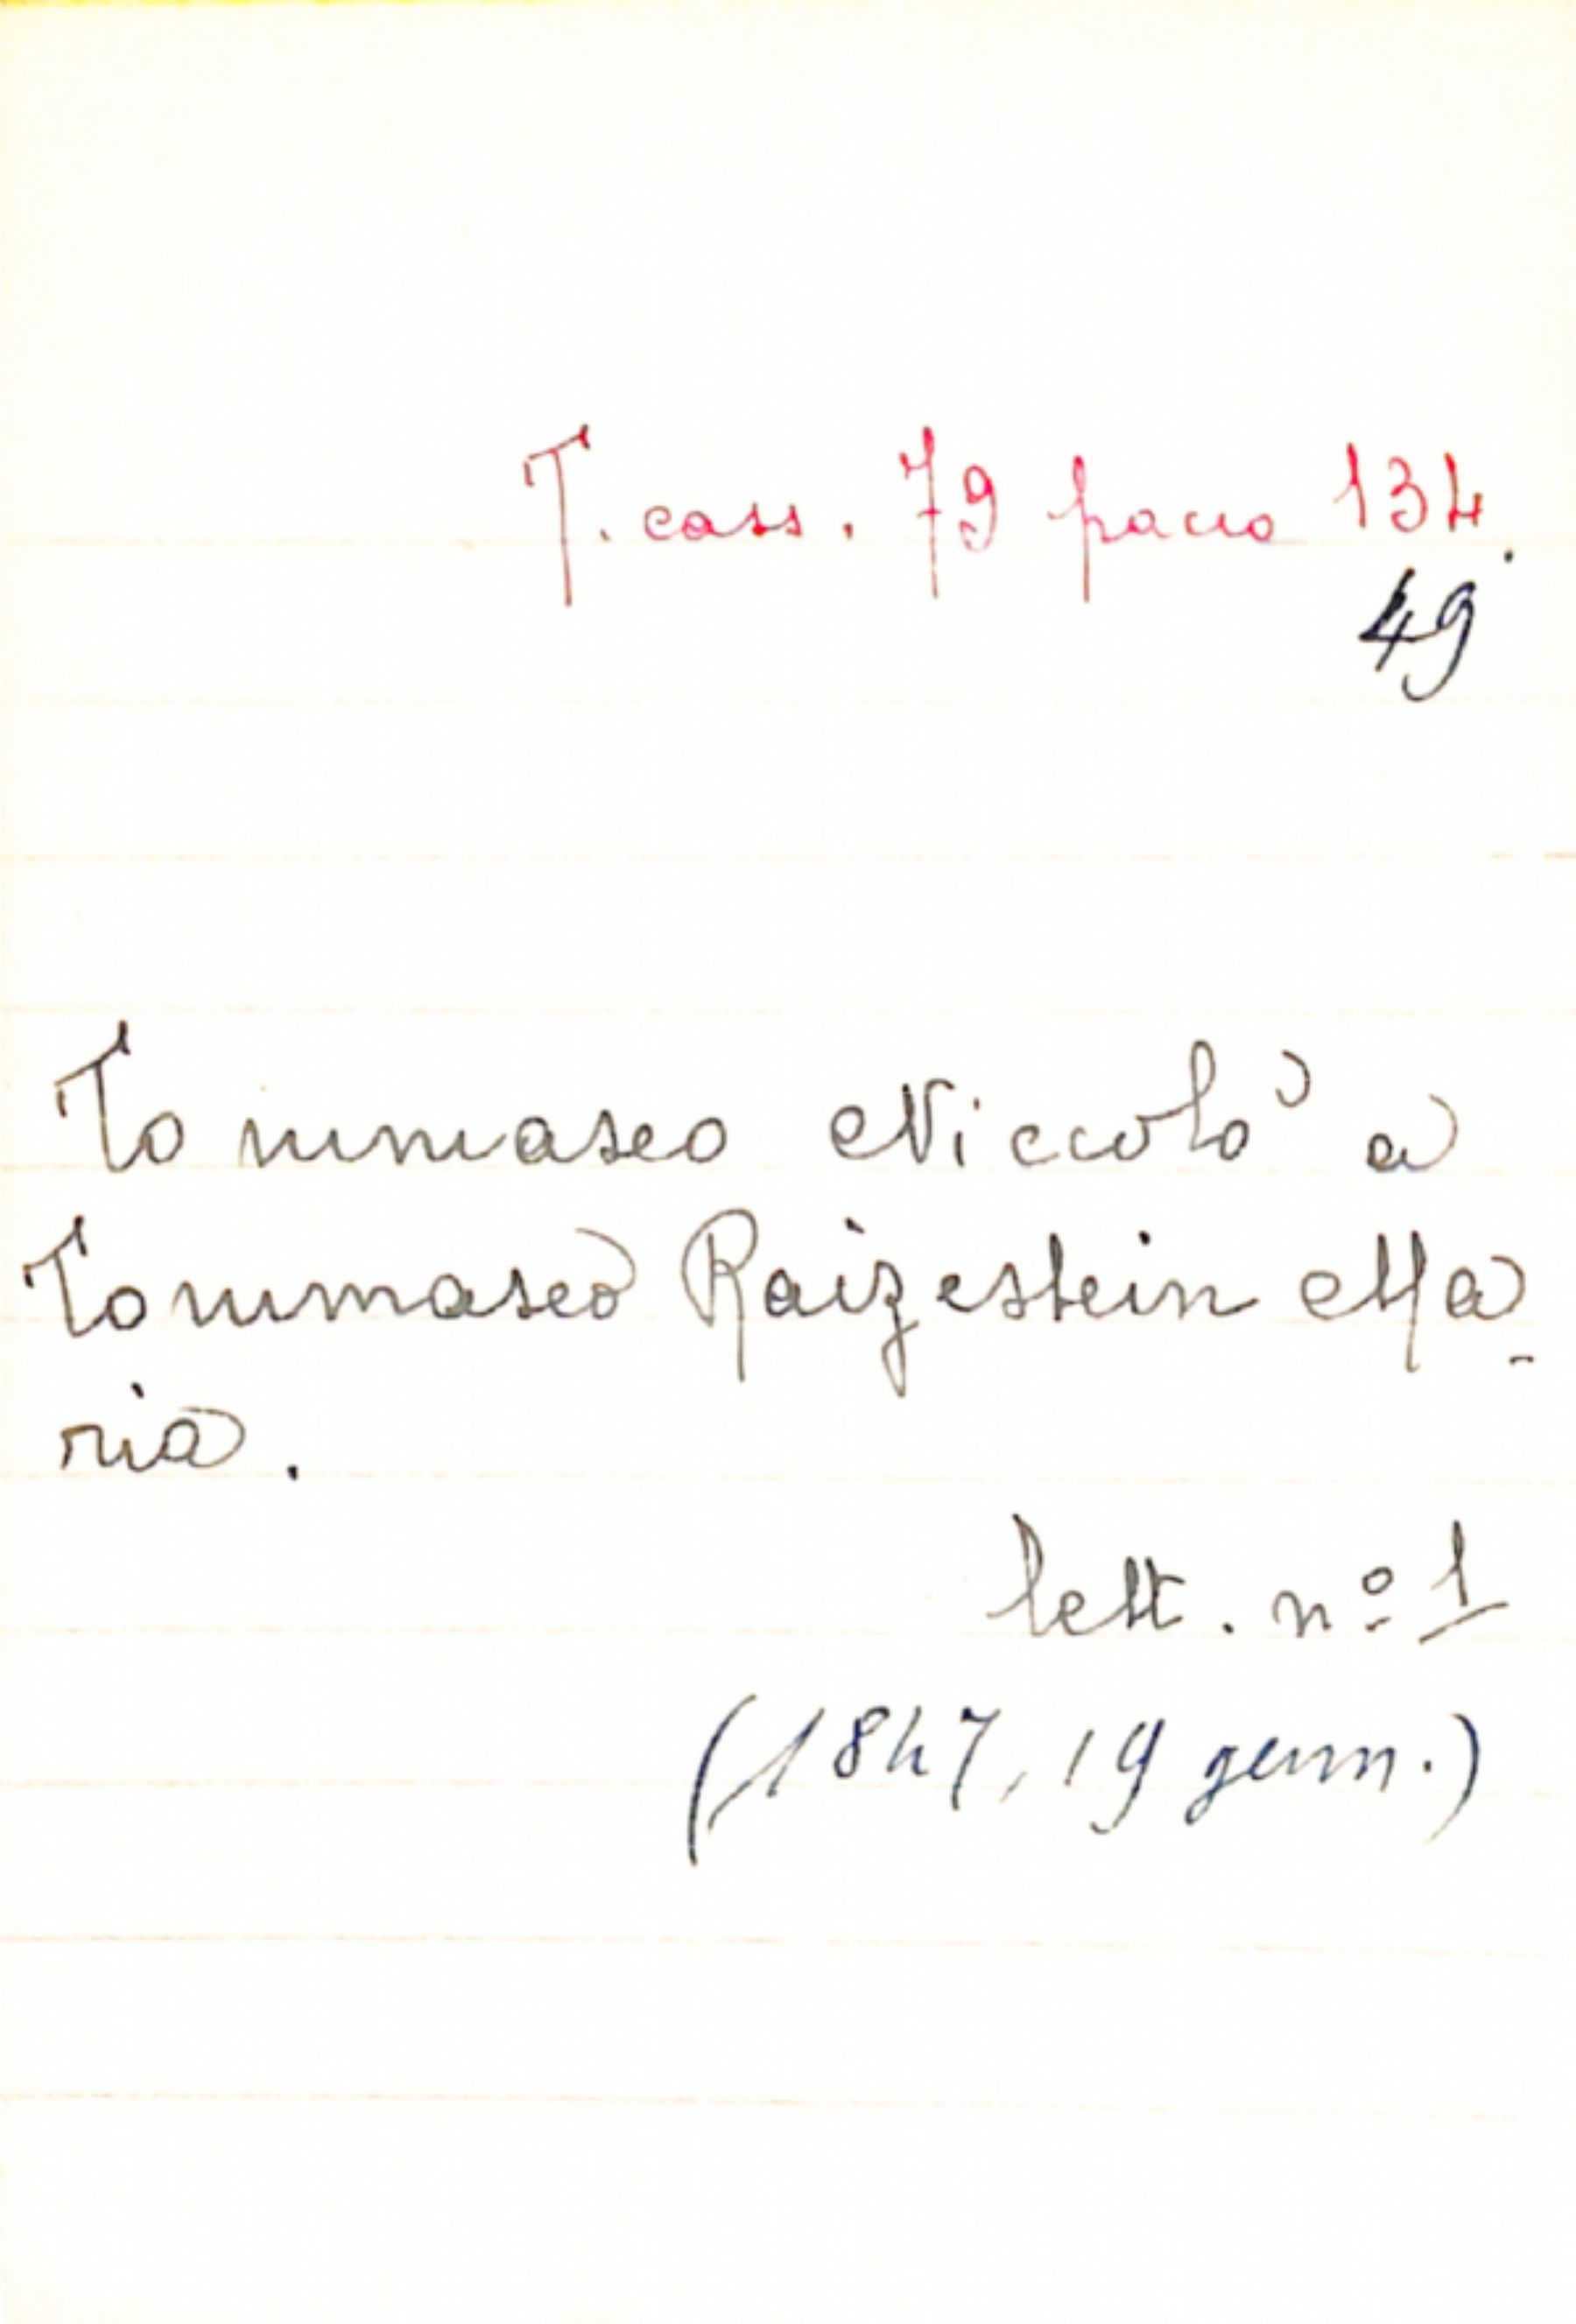 T. cass. 79 pacco 134.
49
Tommaseo Niccolò a
Tommaseo Raizestein Ma-
ria.
lett. nº 1
(1847, 19 genn.)